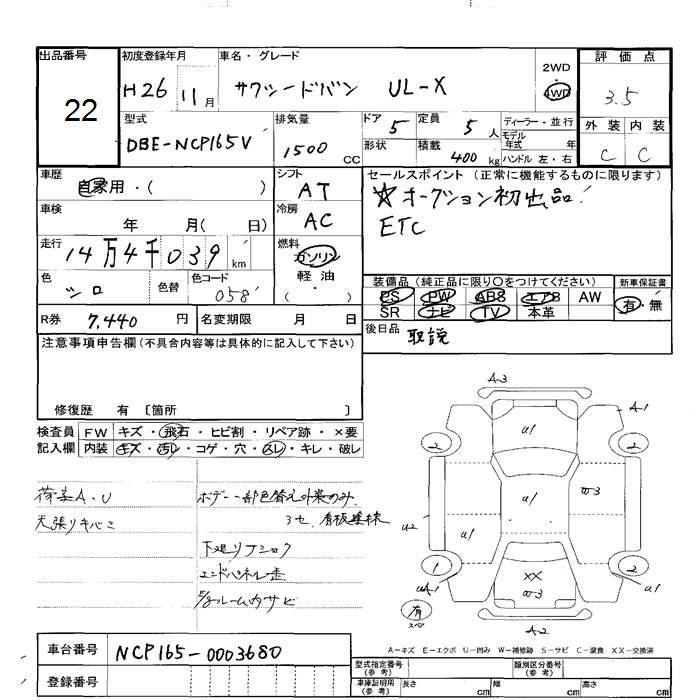 出品番号 初度登録年月 車名・グレード 評価点
22
H26 11月 サクシードバン UL-X 2WD 4WD 3.5
型式 排気量 ドア 定員 ディーラー・並行
DBE-NCP165V 1500 CC 5 5人 モデル年式 年
形状 積載 400kg ハンドル 左・右
外装 内装
C C
車歴 自家用・( ) シフト AT
セールスポイント (正常に機能するものに限ります)
☆オークション初出品!
ETC
車検 年 月( 日) 冷房 AC
走行 14万4千039km 燃料 ガソリン
軽油
( )
色 シロ 色替 色コード 058
装備品 (純正品に限り○をつけてください) 新車保証書
PS PW ABS エアB AW 有・無
SR ナビ TV 本革
R券 7,440円 名変期限 月 日
後日品 取説
注意事項申告欄(不具合内容等は具体的に記入して下さい)
修復歴 有 〔箇所 〕
検査員記入欄 FW キズ・飛石・ヒビ割・リペア跡・×要
内装 キズ・汚レ・コゲ・穴・スレ・キレ・破レ
荷室A、U ボデー一部色替え外装のみ
天張りキバミ 3セ
下廻りナショク
エンドパネル歪
車台番号 NCP165-0003680
登録番号
A-3
A-1
2 U1 2
U2 U1 U3
U1
1 XX 2
UA1 U1
有
スペア
A-2
A-キズ E-エクボ U-凹み W-補修跡 S-サビ C-腐食 XX-交換済
型式指定番号(参考) 類別区分番号(参考)
車庫証明用(参考) 長さ cm 幅 cm 高さ cm